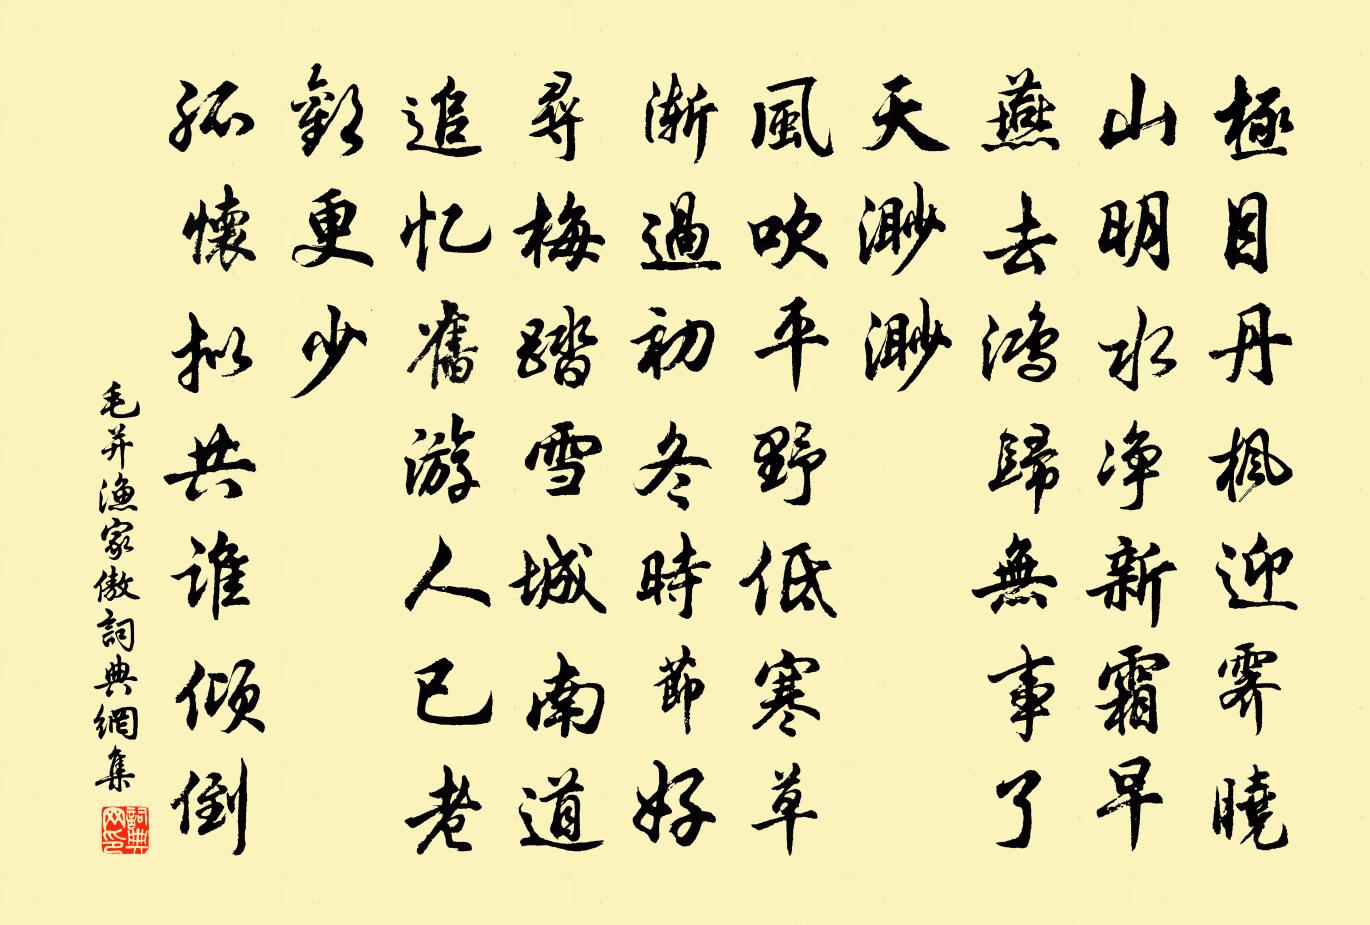 極目丹楓迎霽曉
山明水净新霜早
燕去鸿歸無事了
天渺渺
風吹平野低寒草
漸過初冬時節好
尋梅踏雪城南道
追忆舊游人已老
歡更少
孤懷拟共谁傾倒
毛并渔家傲詞典網集
詞典网印